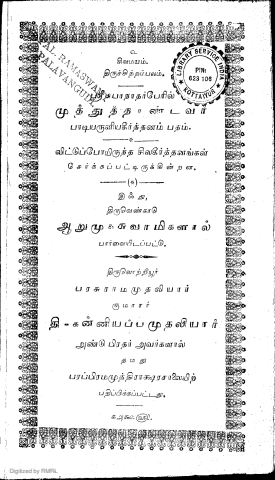 உ
சிவமயம்.
திருச்சிற்றம்பலம்.
சபாநாதர்பேரில்
முத்துத்தாண்டவர்
பாடியருளியகீர்த்தனம் பதம்.
விட்டுப்போயிருந்த சிலகீர்த்தனங்கள்
சேர்க்கப்பட்டிருக்கின்றன.
இஃது,
திருவெண்காடு
ஆறுமுகசுவாமிகளால்
பார்வையிடப்பட்டு,
திருவொற்றியூர்
பரசுராமமுதலியார்
குமாரர்
தி-கன்னியப்பமுதலியார்
அண்டு பிரதர் அவர்களால்
தமது
பரப்பிரமமுத்திராக்ஷரசாலையிற்
பதிப்பிக்கப்பட்டது.
AL. RAMASWAMY
PALAVANGUDI
LIBRARY SERVICE INDIA
PIN:
623 106
KOTTAIYUR
Digitized by RMRL